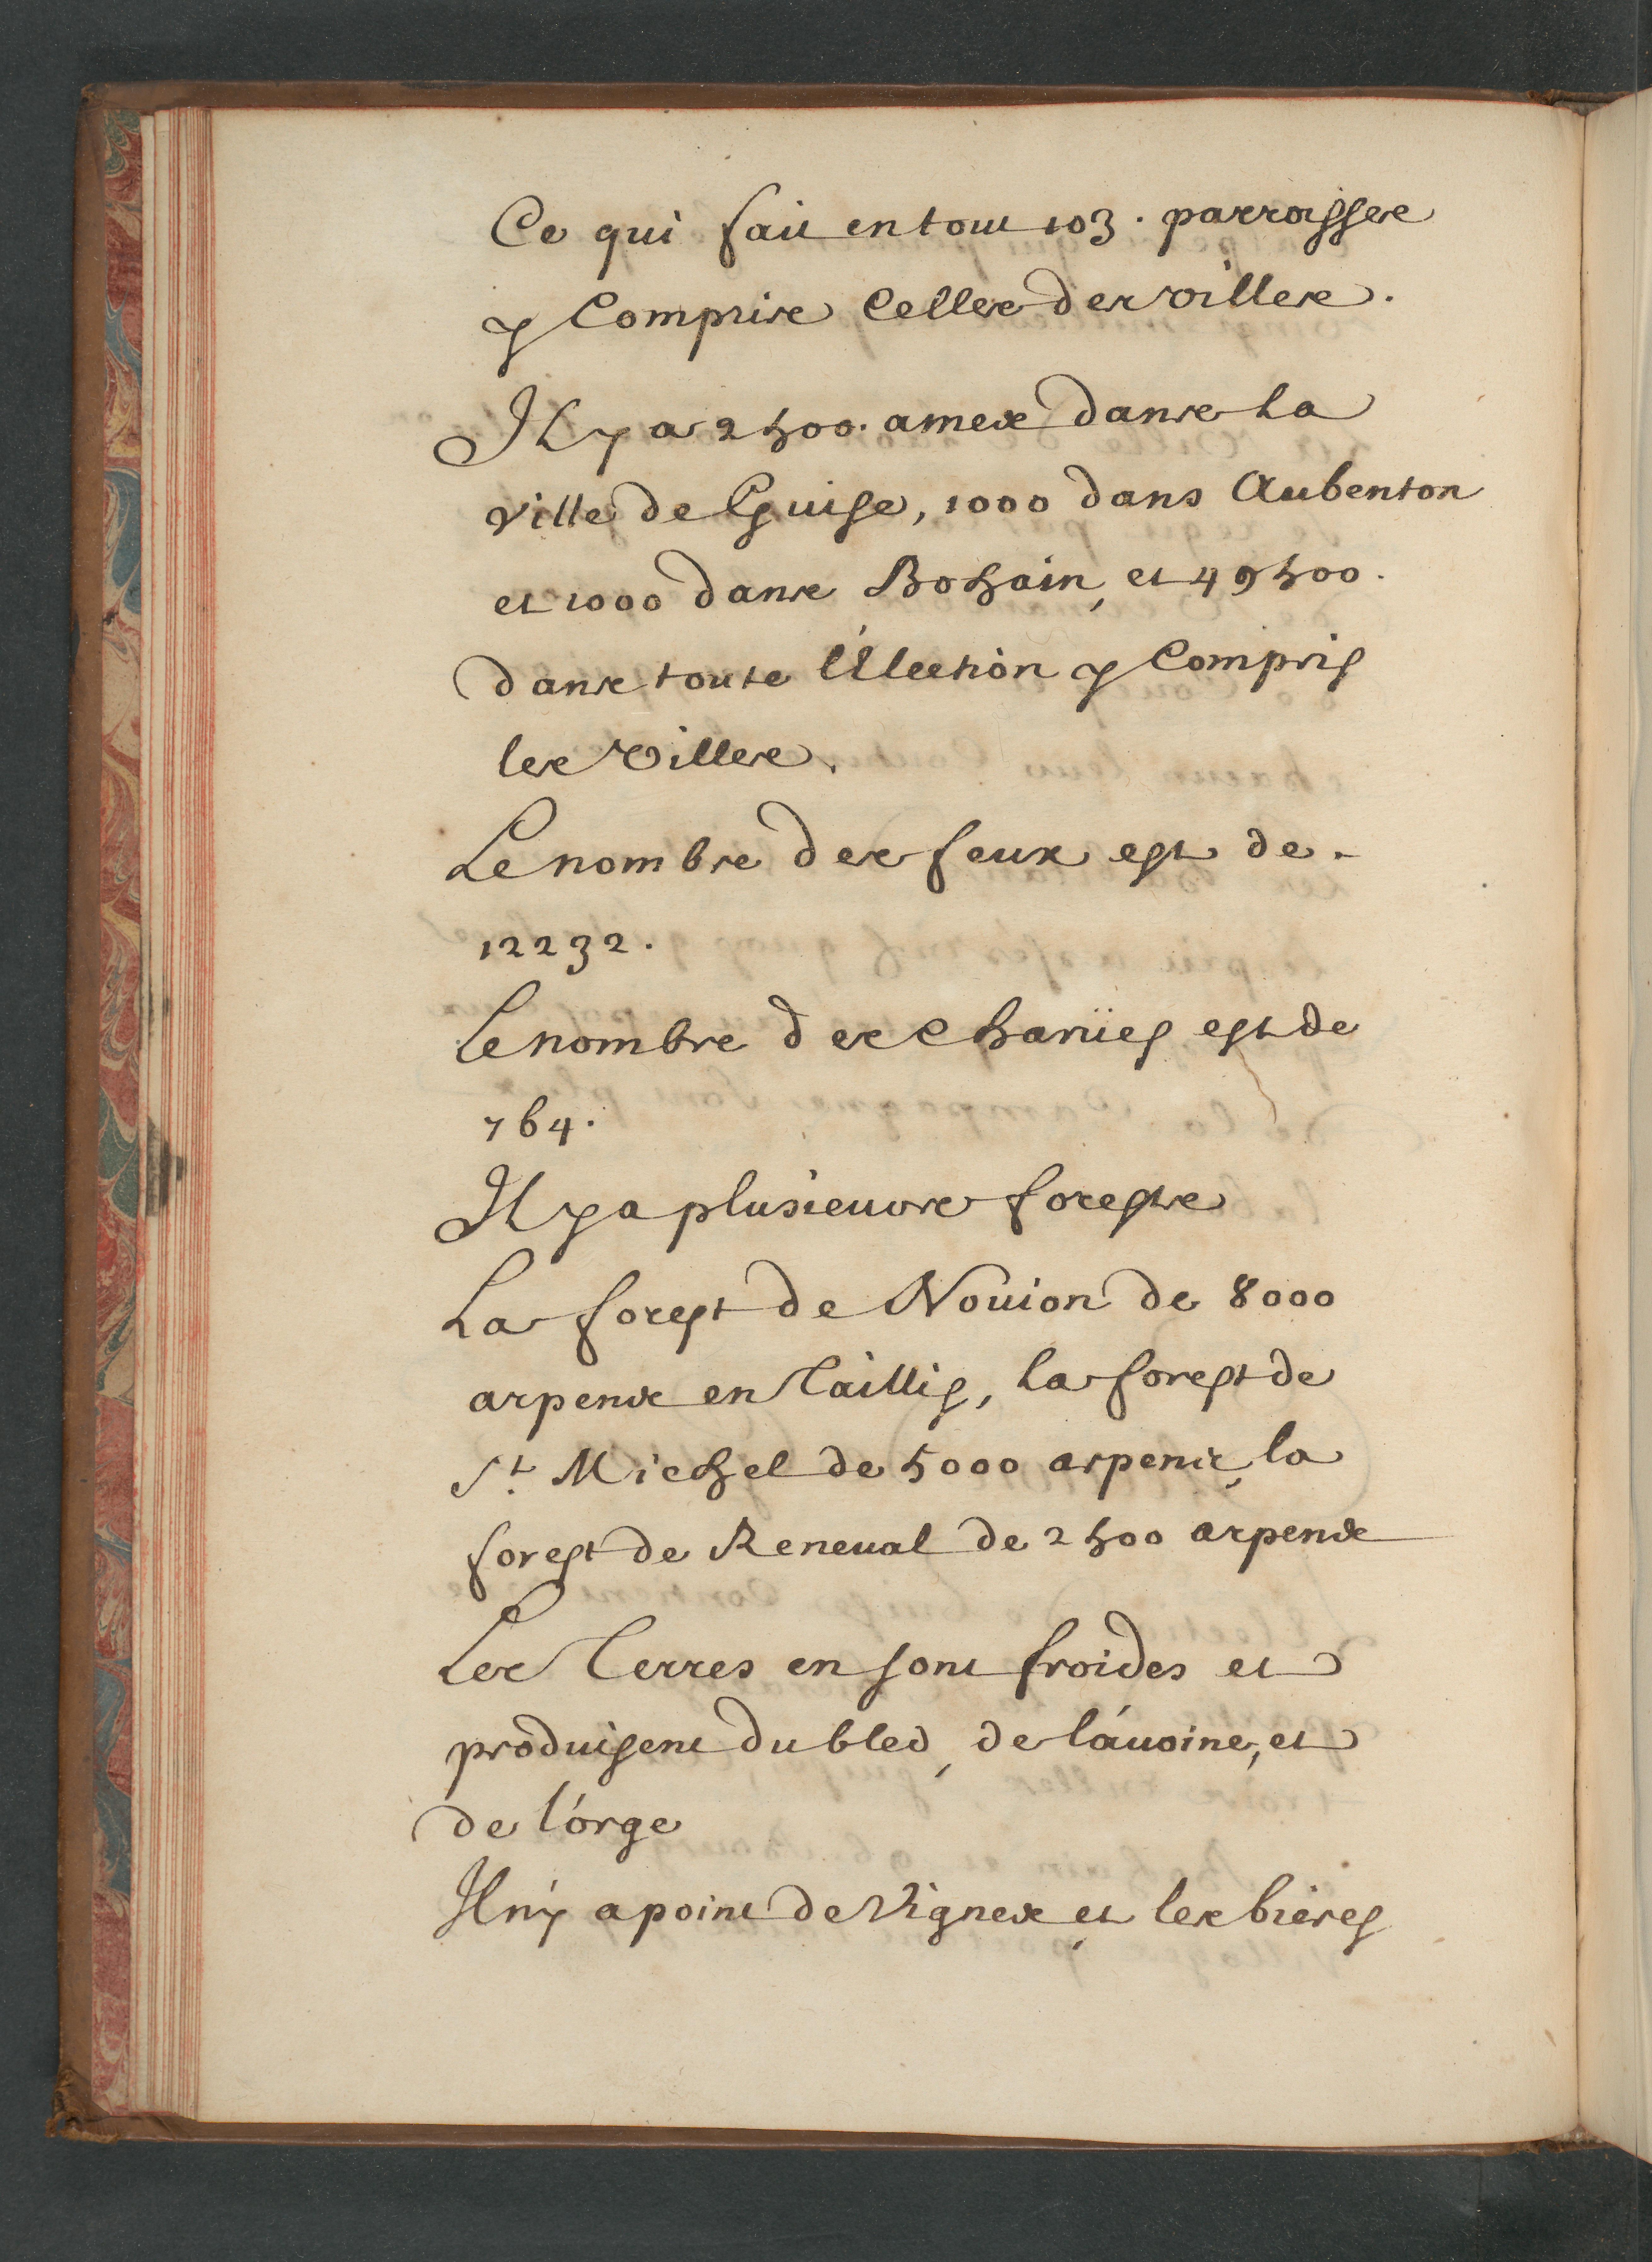 Ce qui fait en tout 103. parroisses
y Compris Celles des villes.
Il y a 2500. ames dans la
Ville de Guise, 1000 dans Aubenton
et 1000 dans Bohain, et 49500.
dans toute l'Election y Compris
les Villes.
Le nombre des feux est de
12232.
Le nombre des charües est de
764.
Il y a plusieurs forests
La forest de Nouion de 8000
arpens en Taillis, la forest de
St. Michel de 5000 arpens, la
forest de Reneual de 2500 arpens
Les Terres en sont froides et
produisent du bled, de l'auoine, et
de l'orge
Il n'y a point de Vignes et les bieres